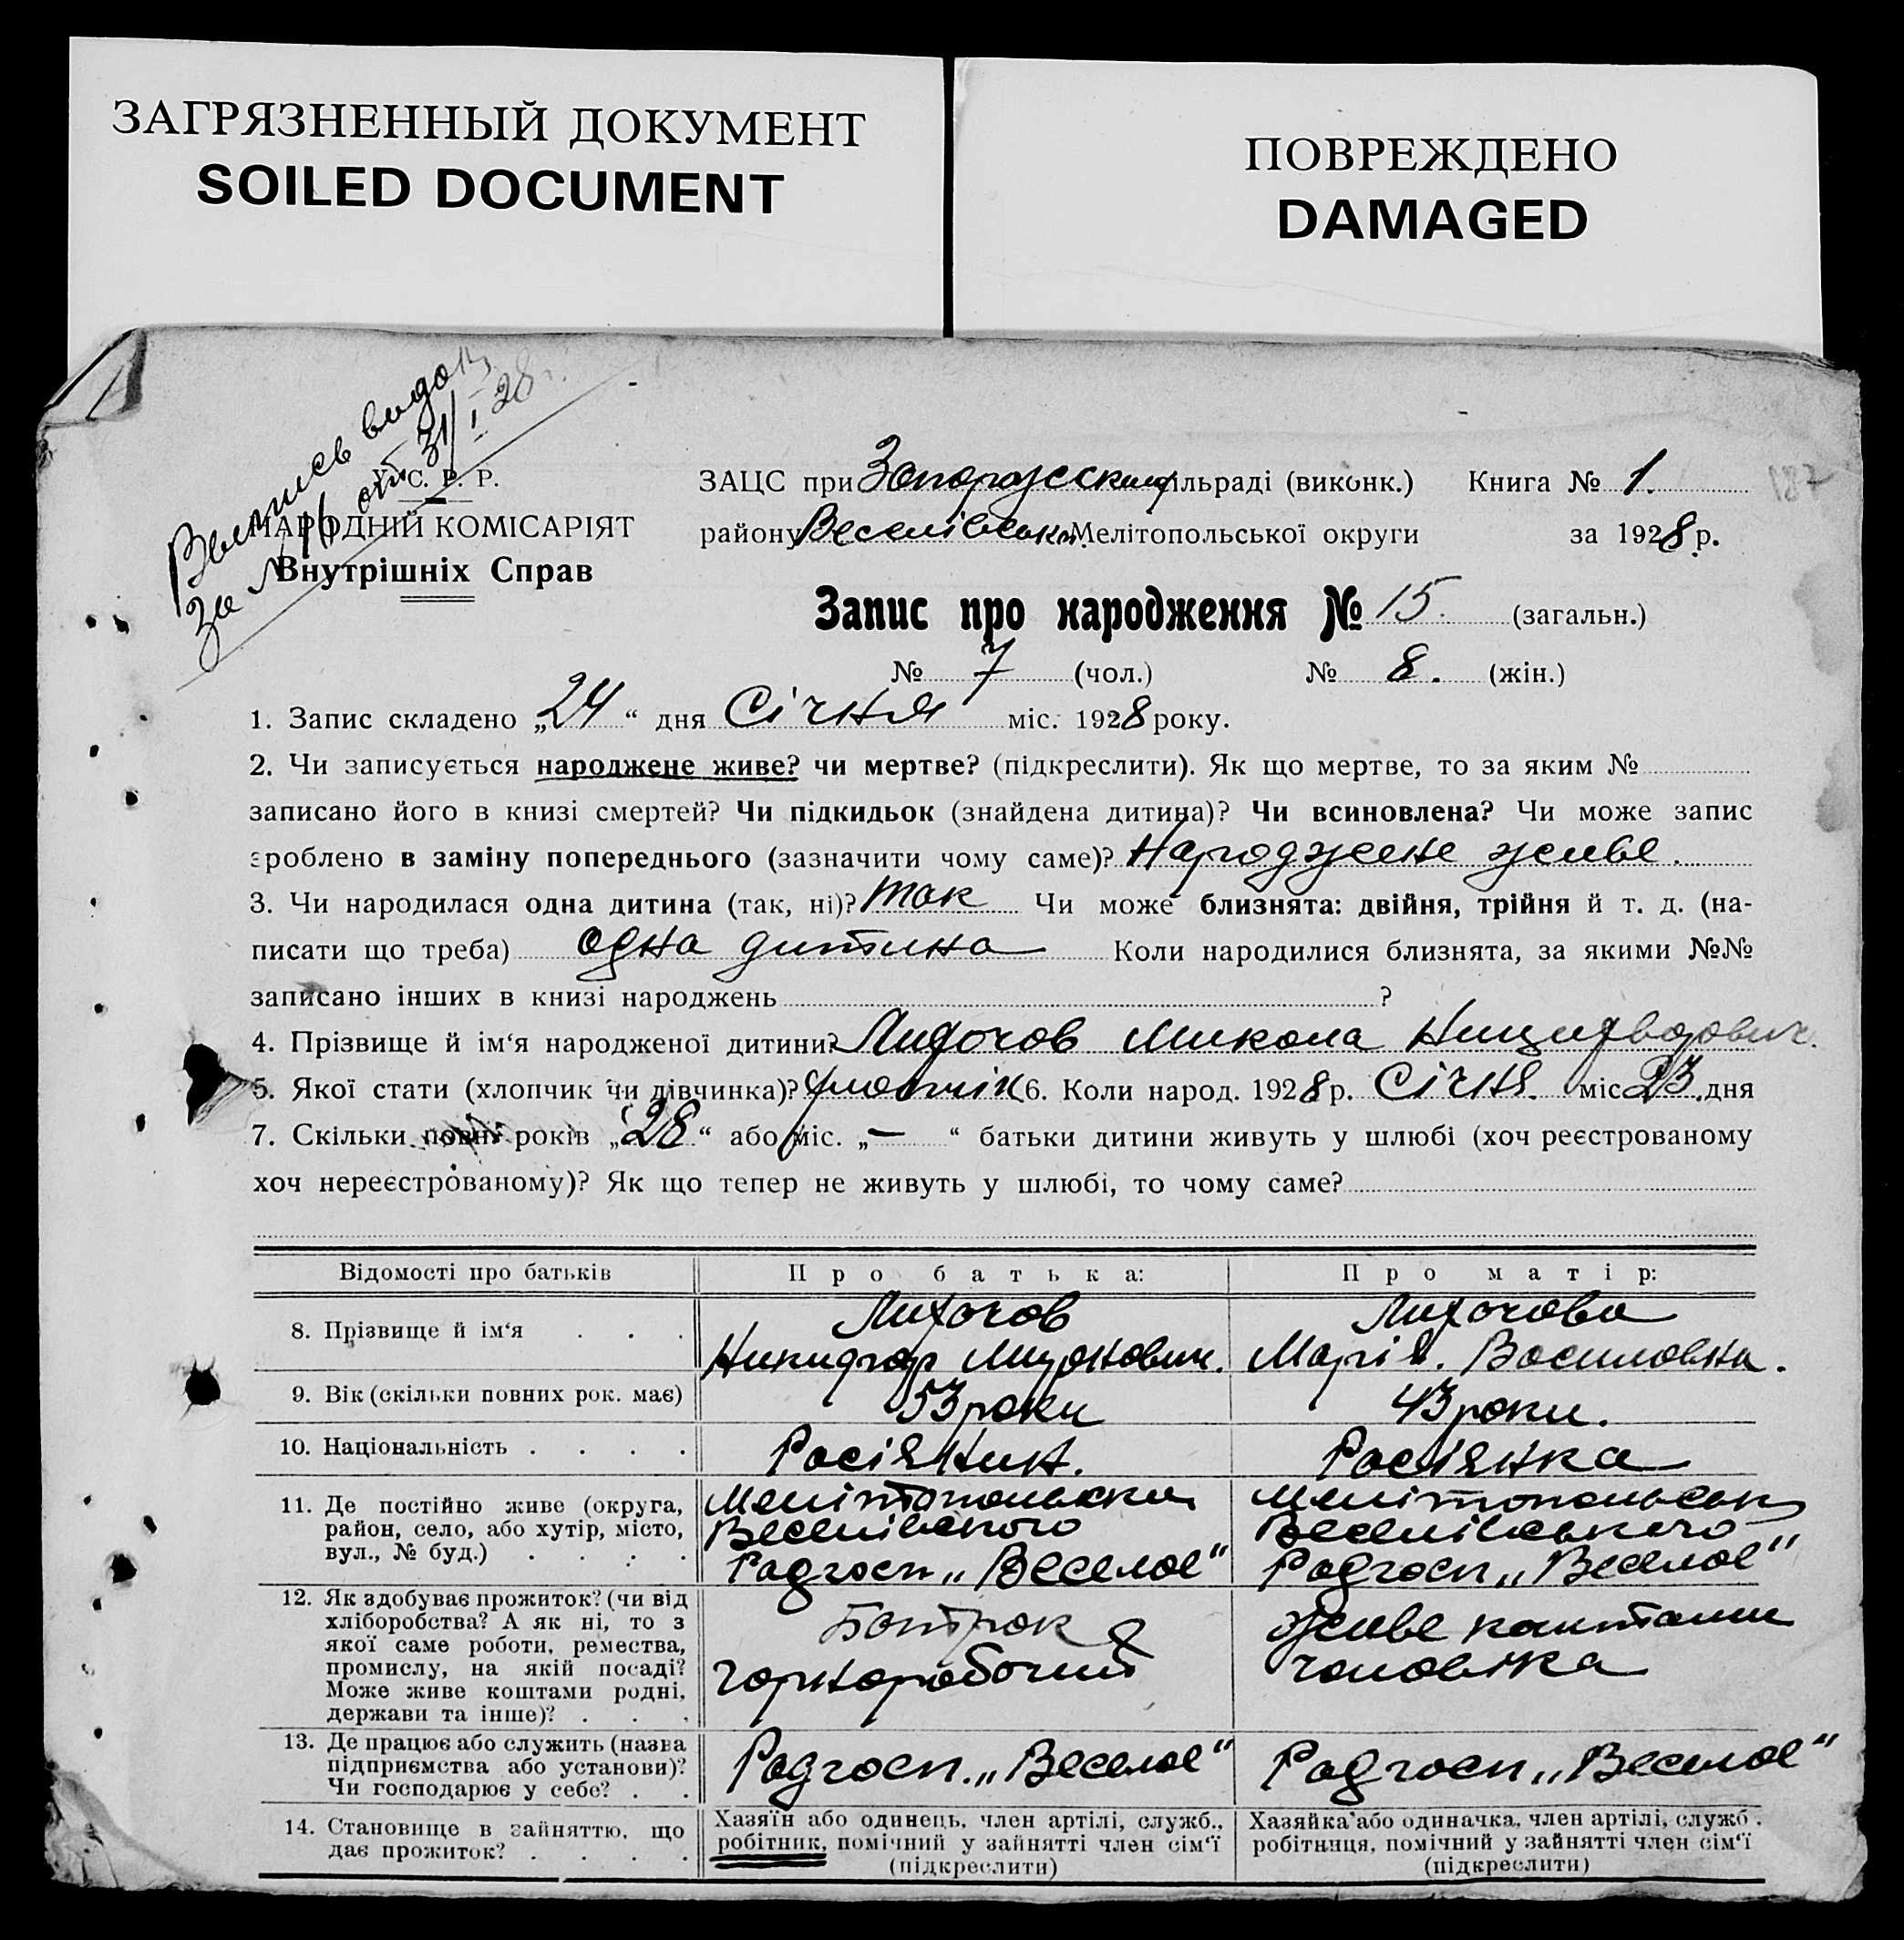 ЗАГРЯЗНЕННЫЙ ДОКУМЕНТ
SOILED DOCUMENT
ПОВРЕЖДЕНО
DAMAGED
Выпись видона
за № 16 от 31/I 28 г.
У. С. Р. Р.
НАРОДНІЙ КОМІСАРІЯТ
Внутрішніх Справ
ЗАЦС при сільраді (виконк.) Книга № 1. 187
району Мелітопольської округи за 1928 р.
Запис про народження № 15. (загальн.)
№ 7 (чол.) № 8. (жін.)
1. Запис складено „24“ дня Січня міс. 1928 року.
2. Чи записується народжене живе? чи мертве? (підкреслити). Як що мертве, то за яким №
записано його в книзі смертей? Чи підкидьок (знайдена дитина)? Чи всиновлена? Чи може запис
зроблено в заміну попереднього (зазначити чому саме)? Народжене живе.
3. Чи народилася одна дитина (так, ні)? так Чи може близнята: двійня, трійня й т. д. (на-
писати що треба) одна дитина Коли народилися близнята, за якими №№
записано інших в книзі народжень ?
4. Прізвище й ім‘я народженої дитини? Микола
5. Якої стати (хлопчик чи дівчинка)? 6. Коли народ. 1928 р. Січня. міс 23. дня
7. Скільки повні років „28“ або міс. „—“ батьки дитини живуть у шлюбі (хоч реєстрованому
хоч нереєстрованому)? Як що тепер не живуть у шлюбі, то чому саме?
Відомості про батьків Про батька: Про матір:
8. Прізвище й ім‘я
Марія. Василовна.
9. Вік (скільки повних рок. має) 53 роки 43 роки.
10. Національність Росіянин. Росіянка
11. Де постійно живе (округа,
район, село, або хутір, місто,
вул., № буд.)
Веселівского Веселівського
Радгосп „Веселое“ Радгосп „Веселое“
12. Як здобуває прожиток? (чи від
хліборобства? А як ні, то з
якої саме роботи, ремества,
промислу, на якій посаді?
Може живе коштами родні,
держави та інше)?
Батрак
чорноробочий
живе коштами
чоловіка
13. Де працює або служить (назва
підприємства або установи)?
Чи господарює у себе?
Радгосп. „Веселое“ Радгосп „Веселое“
14. Становище в зайняттю, що
дає прожиток?
Хазяїн або одинець, член артілі, служб.,
робітник, помічний у зайнятті член сім‘ї
(підкреслити)
Хазяйка або одиначка, член артілі, служб.
робітниця, помічний у зайнятті член сім‘ї
(підкреслити)